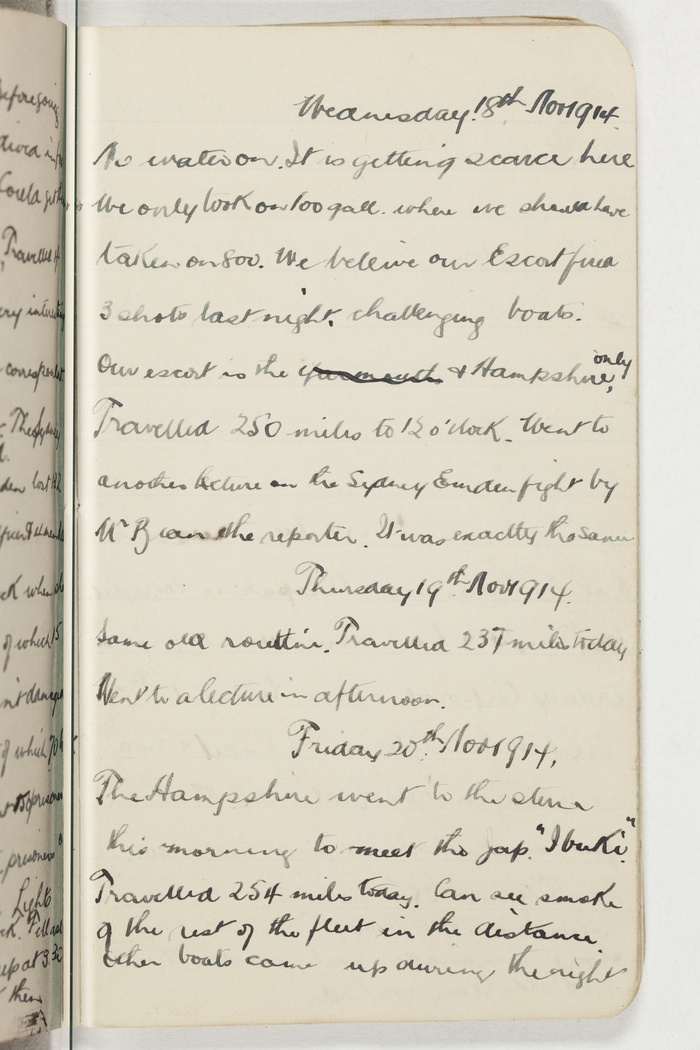 Wednesday. 18th Nov 1914.
No water on. It is getting scarce here
We only took on 100 gall. where we should have
taken on 800. We beleive our Escort fired
3 shots last night, challenging boats.
Our escort is the Yarmouth & Hampshire, only
Travelled 250 miles to 12 o'clock. Went to
another lecture on the Sydney Emden fight by
Mr Bean the reporter. It was exactly the same
Thursday 19th Nov 1914.
Same old routine. Travelled 237 miles today
Went to a lecture in afternoon.
Friday 20th Nov 1914,
The Hampshire went to the stern
this morning to meet the Jap. "Ibuki".
Travelled 254 miles today. Can see smoke
of the rest of the fleet in the distance.
Other boats came up during the night